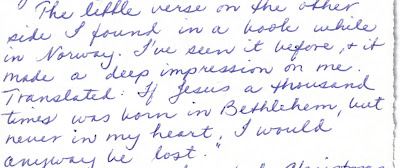 The little verse on the other
side I found in a book while
in Norway. I've seen it before, & it
made a deep impression on me.
Translated: If Jesus a thousand
times was born in Bethlehem, but
never in my heart, I would
anyway be lost."
Christmas